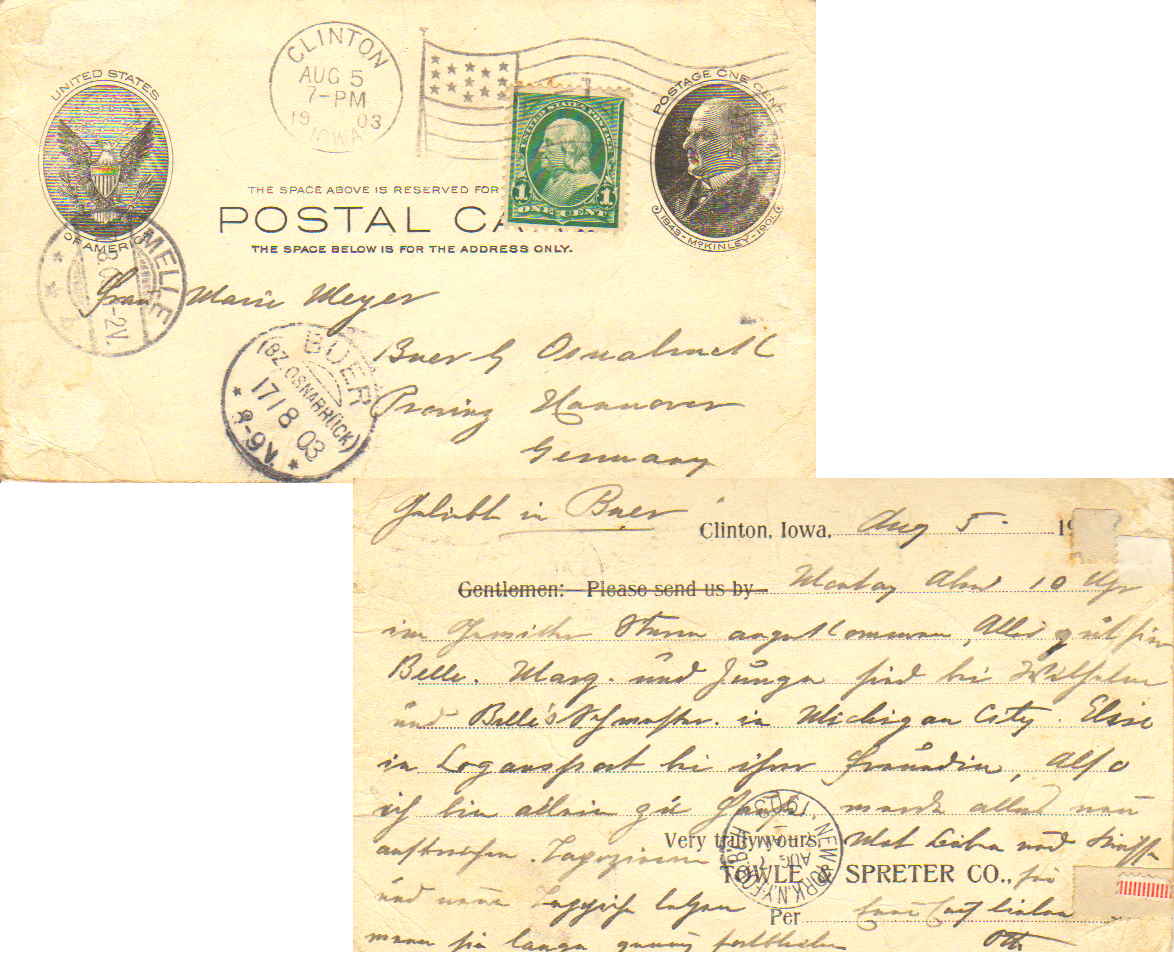 UNITED STATES
OF AMERICA
CLINTON
AUG 5
7-PM
1903
IOWA
POSTAGE ONE CENT
1843-McKINLEY-1901
UNITED STATES POSTAGE
1 1
ONE CENT
THE SPACE ABOVE IS RESERVED FOR
POSTAL CA
THE SPACE BELOW IS FOR THE ADDRESS ONLY.
MELLE
-2V.
Frau Marie Meyer
Buer b/ Osnabrück
Provinz Hannover
Germany
BUER
(BZ. OSNABRÜCK)
17/8 03
8-9V.
Geliebt in Buer
Clinton, Iowa, Aug 5 19
Gentlemen: Please send us by Montag Abend 10 Uhr
im Sturm angekommen, Alles gut hier
Belle. Marg. und Junge sind bei Wilhelm
und Belle's Schwester. in Michigan City. Elsie
in Logansport bei ihrer Freundin, Also
ich bin allein zu Hause werde alles neu
Very truly yours, Mit Liebe und
TOWLE & SPRETER CO.,
und neue Teppiche
Per
wenn sie lange genug fortbleiben Otto
NEW YORK, N.Y.
1903
AUG 7